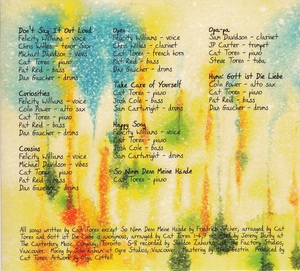 Don't Say It Out Loud
Felicity Williams - voice
Chris Willes - tenor sax
Michael Davidson - vibes
Cat Toren - piano
Pat Reid - bass
Dan Gaucher - drums
Curiosities
Felicity Williams - voice
Colin Power - alto sax
Cat Toren - piano
Pat Reid - bass
Dan Gaucher - drums
Cousins
Felicity Williams - voice
Michael Davidson - vibes
Cat Toren - piano
Pat Reid - bass
Dan Gaucher - drums
Open
Felicity Williams - voice
Chris Willes - clarinet
Cat Toren - french horn
Pat Reid - bass
Dan Gaucher - drums
Take Care of Yourself
Cat Toren - piano
Josh Cole - bass
Sam Cartwright - drums
Happy Song
Felicity Williams - voice
Cat Toren - piano
Josh Cole - bass
Sam Cartwright - drums
So Nimm Denn Meine Hände
Cat Toren - piano
Opa-pa
Sam Davidson - clarinet
JP Carter - trumpet
Cat Toren - piano
Steve Toren - tuba
Hymn: Gott ist Die Liebe
Colin Power - alto sax
Cat Toren - piano
Pat Reid - bass
Dan Gaucher - drums
All songs written by Cat Toren except So Nimm Denn Meine Hände by Friedrich Silcher, arranged by Cat
Toren and Gott ist Die Liebe anonymous, arranged by Cat Toren. recorded by Jeremy Darby at
The Canterbury Music Company, Toronto. 5-8 recorded by Sheldon Zaharko at Factory Studios,
Vancouver. Mixing by at Ogre Studios, Vancouver. Mastering by Produced by
Cat Toren. Artwork by Cottell